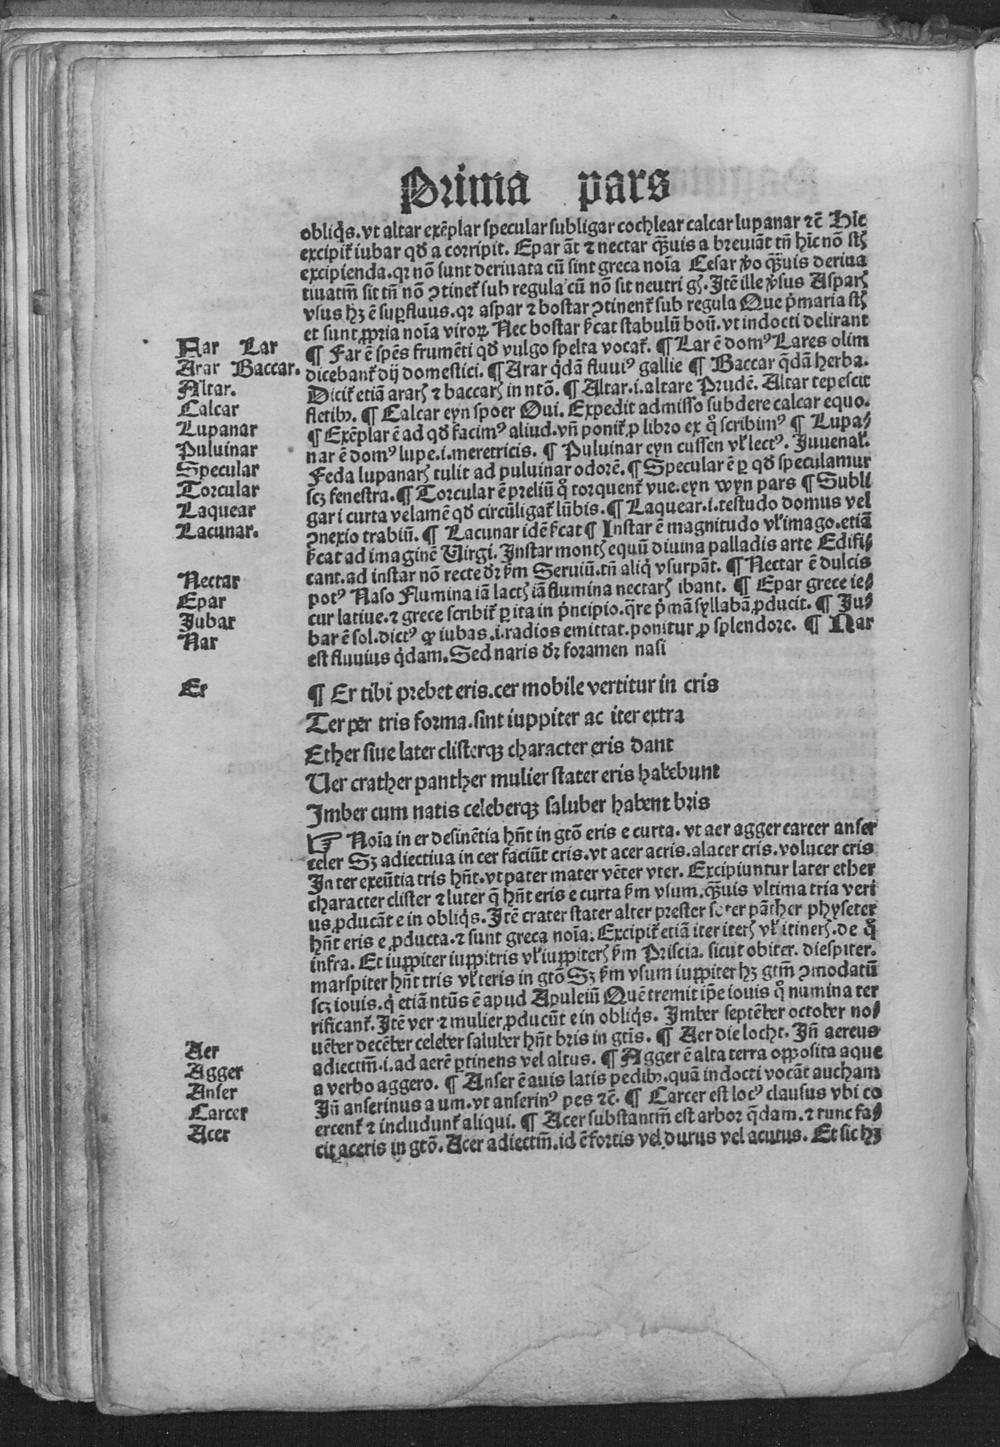 Prima pars
obliq̃s. vt altar exẽplar specular subligar cochlear calcar lupanar ⁊c̃ Hic
excipit᷑ iubar qđ a corripit. Epar añt ⁊ nectar q̃uis a breuiãt tñ hic nõ st᷑
excipienda. qꝛ nõ sunt deriuata cũ sint greca noĩa Cesar ꝟo q̃uis deriua
tiuatm̃ sit tñ nõ ꝯtinet᷑ sub regula cũ nõ sit neutri gñ. Itẽ ille ꝟsus Aspar
vsus hꝫ ẽ suꝑfluus. qꝛ aspar ⁊ bostar ꝯtinent᷑ sub regula Que p̃maria st᷑
et sunt ꝓpria noĩa viroꝝ Nec bostar ẞcat stabulũ boũ. vt indocti delirant
Far Lar
¶ Far ẽ spẽs frumẽti qđ vulgo spelta vocat᷑. ¶ Lar ẽ domꝰ Lares olim
Arar Baccar.
dicebant᷑ dij domestici. ¶ Arar q̃dã fluuiꝰ gallie ¶ Baccar q̃dã herba.
Altar.
Dicit᷑ etiã araris ⁊ baccaris in ntõ. ¶ Altar. i. altare Prudẽ. Altar tepescit
Calcar
fletibꝰ. ¶ Calcar eyn spoer Oui. Expedit admisso subdere calcar equo.
Lupanar
¶ Exẽplar ẽ ad qđ facimꝰ aliud. vñ ponit᷑ ꝓ libro ex q̊ scribimꝰ ¶ Lupa⸗
Puluinar
nar ẽ domꝰ lupe. i. meretricis. ¶ Puluinar eyn cussen vł lectꝰ. Juuenal᷑.
Specular
Feda lupanaris tulit ad puluinar odorẽ. ¶ Specular ẽ ꝑ qđ speculamur
Torcular
scꝫ fenestra. ¶ Torcular ẽ preliũ q̊ torquent᷑ vue. eyn wyn pars ¶ Subli
Laquear
gar i curta velamẽ qđ circũligat᷑ lũbis. ¶ Laquear. i. testudo domus vel
Lacunar.
ꝯnexio trabiũ. ¶ Lacunar idẽ ẞcat ¶ Instar ẽ magnitudo vł imago. etiã
ẞcat ad imaginẽ Uirgi. Instar montis equũ diuina palladis arte Edifi⸗
Nectar
cant. ad instar nõ recte dr̃ ẞm Seruiũ. tñ aliq̃ vsurpãt. ¶ Nectar ẽ dulcis
Epar
potꝰ Naso Flumina iã lactis iã flumina nectaris ibant. ¶ Epar grece ie⸗
Jubar
cur latiue. ⁊ grece scribit᷑ ꝑ ita in p̃ncipio. q̃re p̃mã syllabã ꝓducit. ¶ Ju⸗
Nar
bar ẽ sol. dictꝰ ꝙ iubas. i. radios emittat. ponitur ꝓ splendore. ¶ Nar
est fluuius q̃dam. Sed naris dr̃ foramen nasi
Er
¶ Er tibi prebet eris. cer mobile vertitur in cris
Ter per tris forma. sint iuppiter ac iter extra
Ether siue later clisterqꝫ character eris dant
Uer crather panther mulier stater eris habebunt
Imber cum natis celeberqꝫ saluber habent bris
☞ Noĩa in er desinẽtia hñt in gtõ eris e curta. vt aer agger carcer anser
celer Sꝫ adiectiua in cer faciũt cris. vt acer acris. alacer cris. volucer cris
In ter exeũtia tris hñt. vt pater mater vẽter vter. Excipiuntur later ether
character clister ⁊ luter q̃ hñt eris e curta ẞm vsum. q̃uis vltima tria veri
us ꝓducãt e in obliq̃s. Itẽ crater stater alter prester pãther physeter
hñt eris e ꝓducta. ⁊ sunt greca noĩa: Excipit᷑ etiã iter iteris vł itineris. de q̊
infra. Et iuꝑpiter iuppitris vł iuppiteris ẞm Priscia. sicut obiter. diespiter.
marspiter hñt tris vł teris in gtõ Sꝫ ẞm vsum iuppiter hꝫ gtm̃ ꝯmodatũ
scꝫ iouis. q̃ etiã ntũs ẽ apud Apuleiũ Quẽ tremit ip̃e iouis q̊ numina ter
rificant᷑. Itẽ ver ⁊ mulier ꝓducũt e in obliq̃s. Imber septẽber october no⸗
uẽber decẽber celeber saluber hñt bris in gtis. ¶ Aer die locht. Iñ aereus
Aer
adiectm̃. i. ad aerẽ ꝑtinens vel altus. ¶ Agger ẽ alta terra opposita aque
Agger
a verbo aggero. ¶ Anser ẽ auis latis pedibꝰ. quã indocti vocãt aucham
Anser
Iñ anserinus a um. vt anserinꝰ pes ⁊c̃. ¶ Carcer est locꝰ clausus vbi co
Carcer
ercent᷑ ⁊ includunt᷑ aliqui. ¶ Acer substantm̃ est arbor q̃dam. ⁊ tunc fa⸗
Acer
cit aceris in gtõ. Acer adiectm̃. id ẽ fortis vel durus vel acutus. Et sic hꝫ